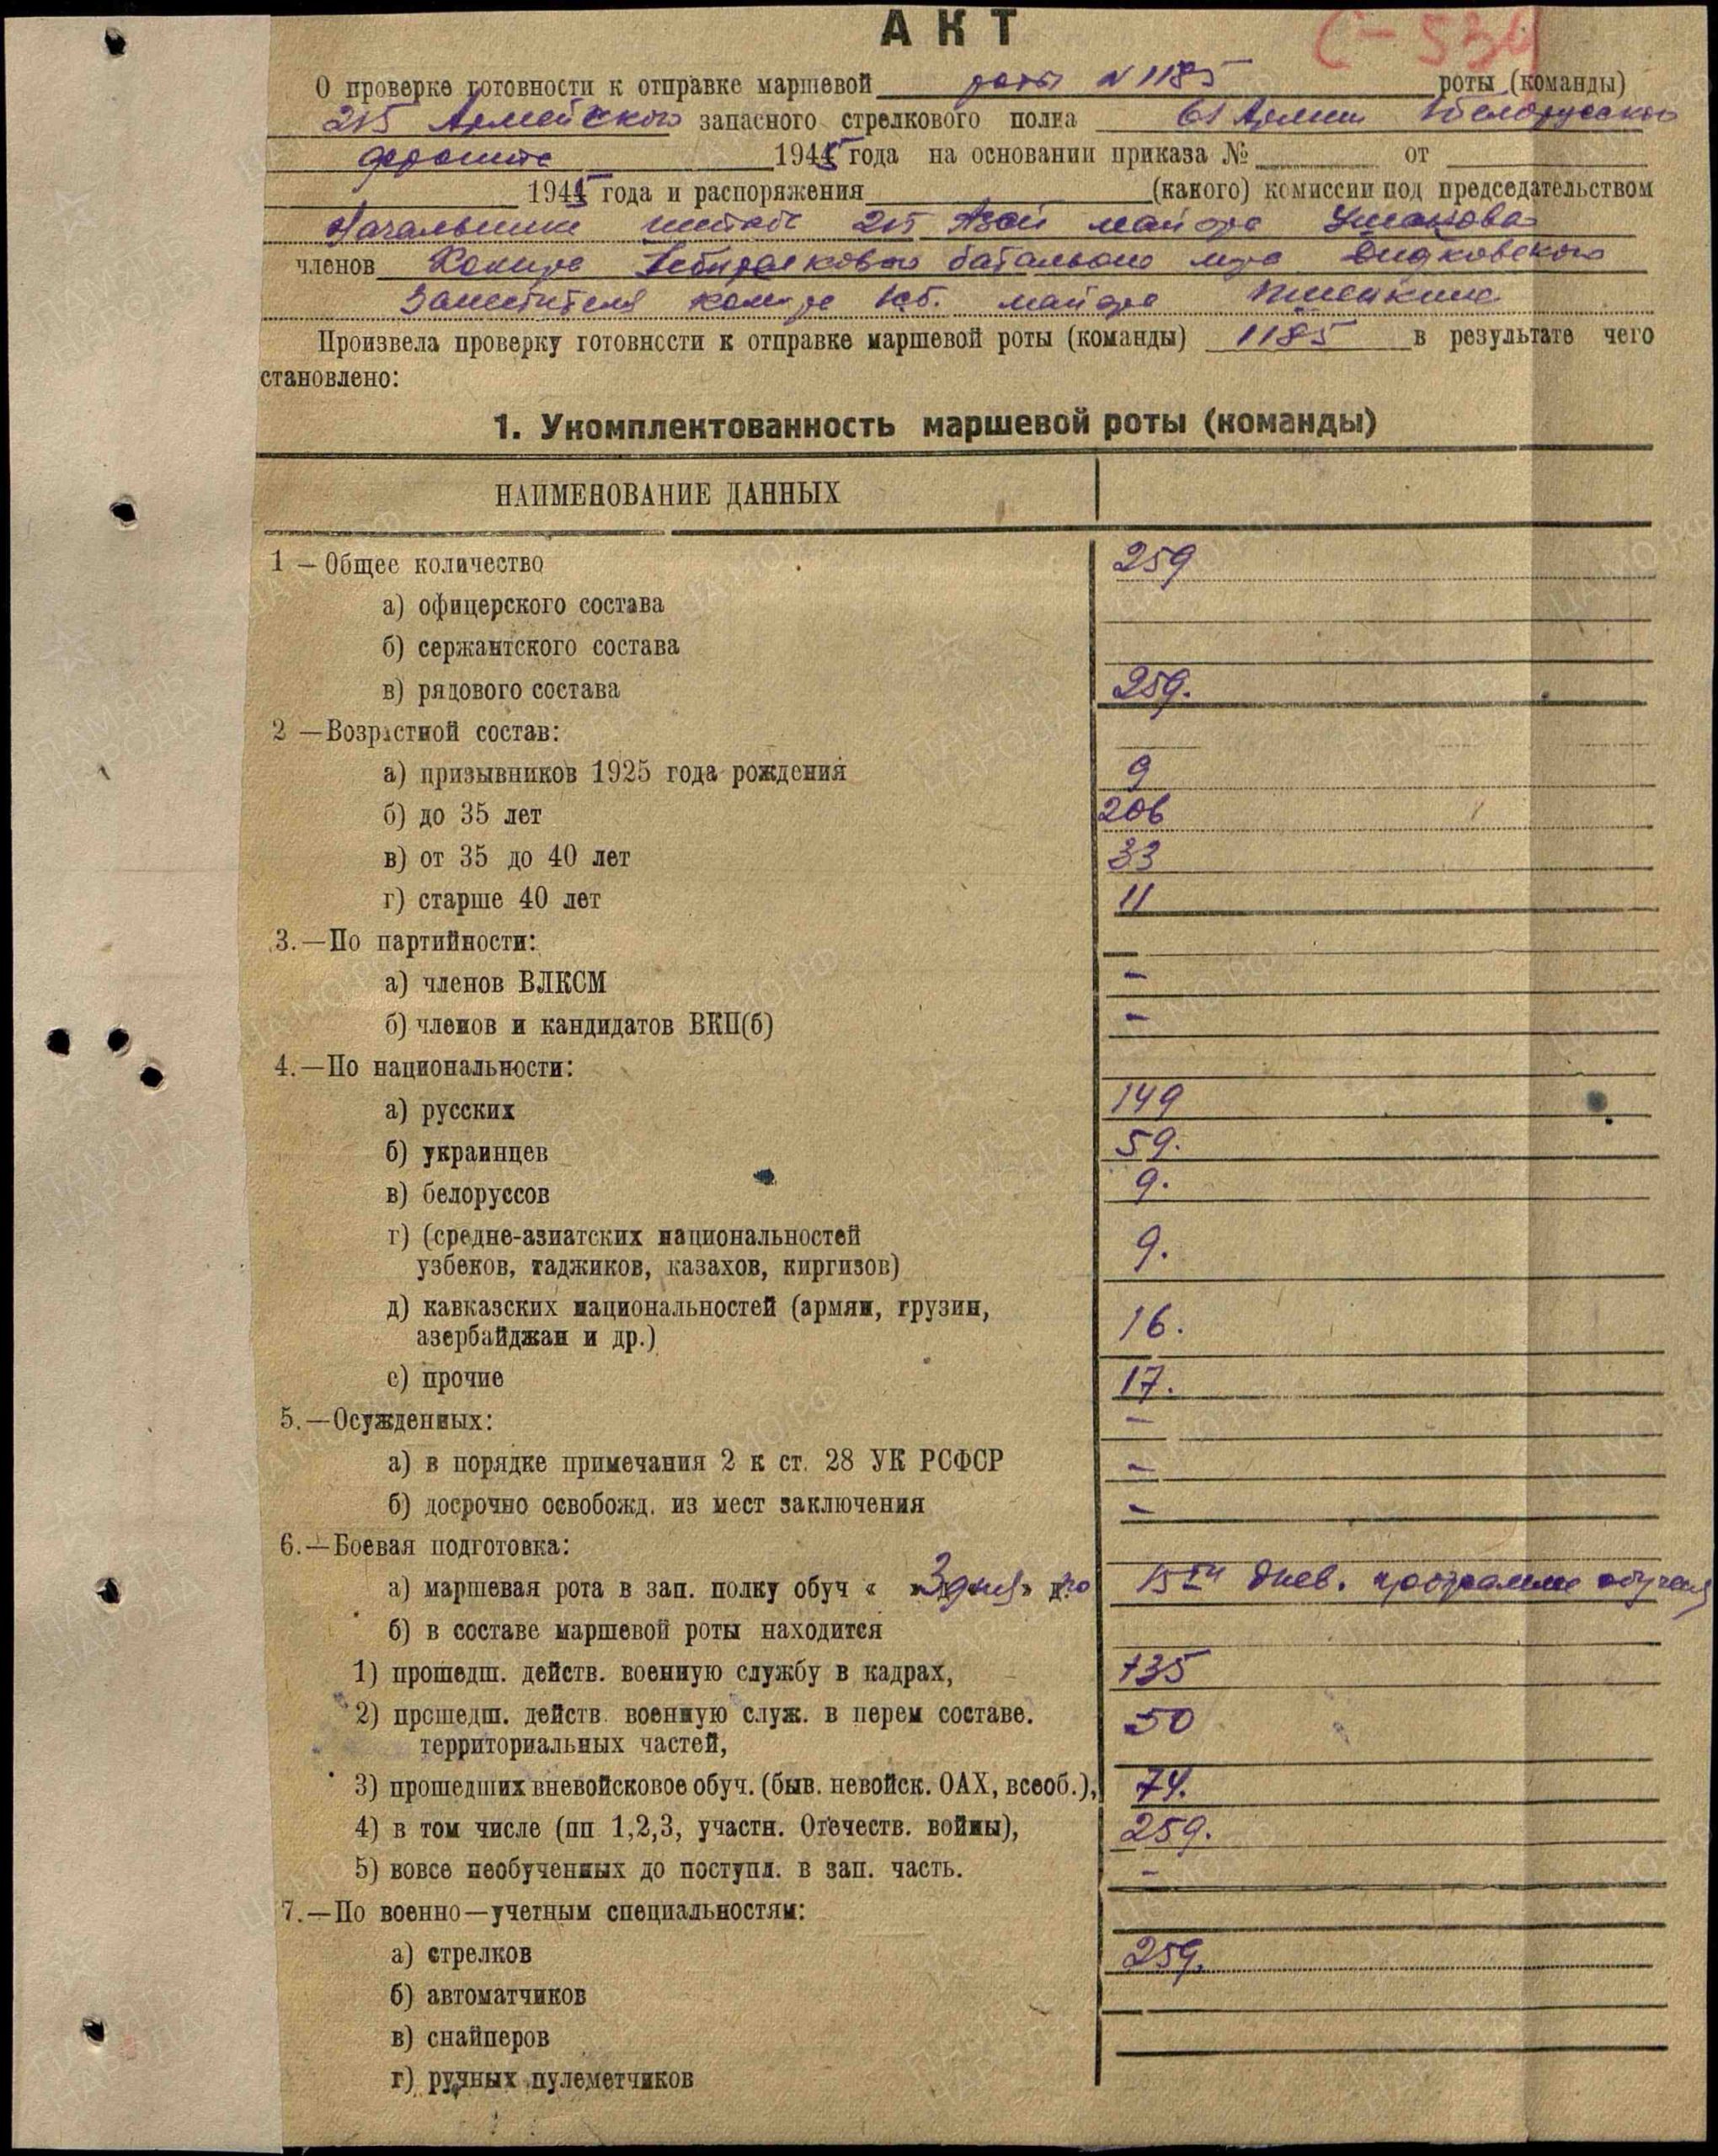 АКТ
С-534
О проверке готовности к отправке маршевой роты N 1185 роты (команды)
215 Армейского запасного стрелкового полка 61 Армии 1 Белорусского
фронта 1945 года на основании приказа № от
1945 года и распоряжения (какого) комиссии под председательством
Начальника штаба 215 Азсп майора Ушакова
членов Комира 1 стрелкового батальона м-ра Дидковского
Заместителя ком-ра 1сб. майора
Произвела проверку готовности к отправке маршевой роты (команды) 1185 в результате чего
становлено:
1. Укомплектованность маршевой роты (команды)
НАИМЕНОВАНИЕ ДАННЫХ
1 — Общее количество 259
а) офицерского состава
б) сержантского состава
в) рядового состава 259.
2 — Возрастной состав:
а) призывников 1925 года рождения 9
б) до 35 лет 206
в) от 35 до 40 лет 33
г) старше 40 лет 11
3.—По партийности: —
а) членов ВЛКСМ —
б) членов и кандидатов ВКП(б) —
4.—По национальности:
а) русских 149
б) украинцев 59.
в) белоруссов 9.
г) (средне-азиатских национальностей
узбеков, таджиков, казахов, киргизов) 9.
д) кавказских национальностей (армян, грузин,
азербайджан и др.) 16.
е) прочие 17.
5.—Осужденных: —
а) в порядке примечания 2 к ст. 28 УК РСФСР —
б) досрочно освобожд. из мест заключения —
6.—Боевая подготовка:
а) маршевая рота в зап. полку обуч « 3 дня» по 15ти днев. программе обучения
б) в составе маршевой роты находится
1) прошедш. действ. военную службу в кадрах, 135
2) прошедш. действ. военную служ. в перем составе.
территориальных частей, 50
3) прошедших вневойсковое обуч. (быв. невойск. ОАХ, всеоб.), 74.
4) в том числе (пп 1,2,3, участн. Отечеств. войны), 259.
5) вовсе необученных до поступл. в зап. часть. —
7.—По военно—учетным специальностям:
а) стрелков 259.
б) автоматчиков
в) снайперов
г) ручных пулеметчиков